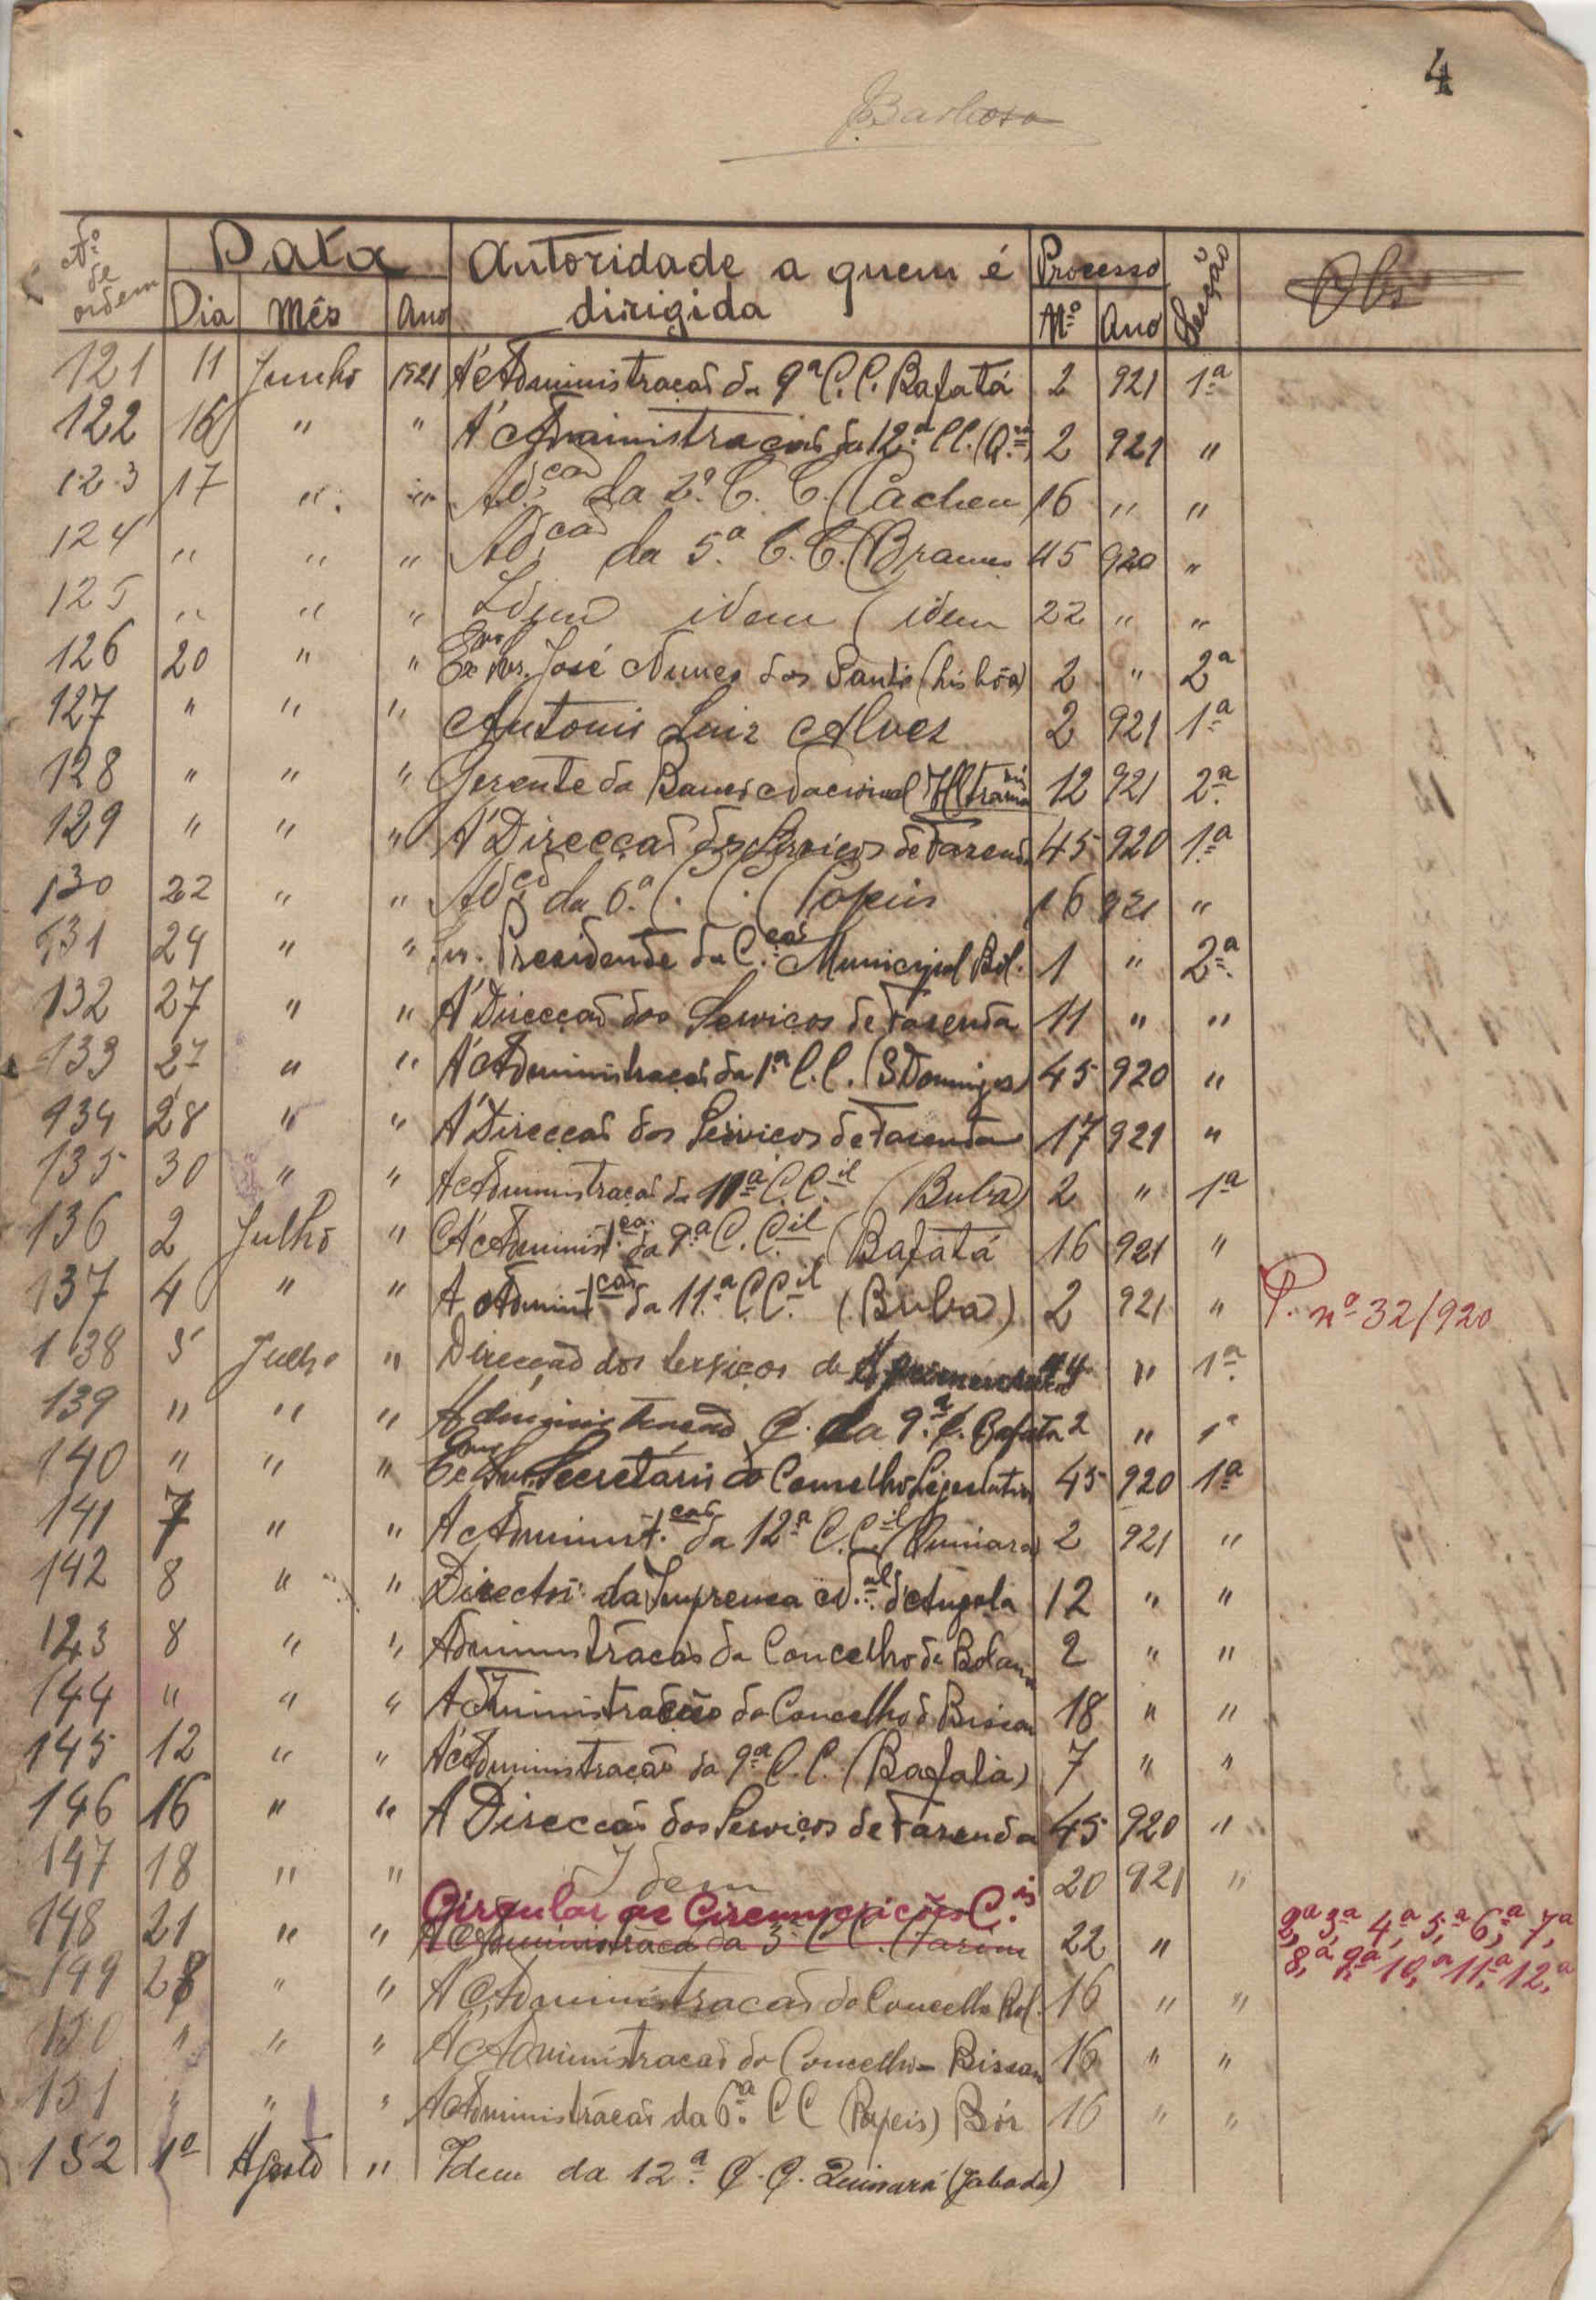 4
Barbosa
Nº de ordem Data Autoridade a quem é dirigida Processo Secção Obs
Dia Mês Ano Nº Ano
121 11 Junho 1921 A' Administração da 9ª C. C. Bafatá 2 921 1ª
122 16 " " A' Administração da 12ª C.C. (Q.ra) 2 921 "
123 17 " " Ad.cão da 2ª C. C. (Cacheu 16 " "
124 " " " Ad.cão da 5ª C. C. (Brames 45 920 "
125 " " " Idem idem (idem 22 " "
126 20 " " Exmo Snr. José Nunes dos Santos (Lisbôa) 2 " 2ª
127 " " " Antonio Luiz Alves 2 921 1ª
128 " " " Gerente do Banco Nacional Ultramno 12 921 2ª
129 " " " A' Direcção dos Serviços de Fazenda 45 920 1ª
130 22 " " Ad.cão da 6ª C. C. (Papeis 16 921 "
131 24 " " Snr. Presidente da C.cão Municipal Bol. 1 " 2ª
132 27 " " A' Direcção dos Serviços de Fazenda 11 " "
133 27 " " A' Administração da 1ª C. C. (S Domingos) 45 920 "
134 28 " " A' Direcção dos Serviços de Fazenda 17 921 "
135 30 " " A Administração da 11ª C. C.il (Buba) 2 " 1ª
136 2 Julho " A' Administ.ção da 9ª C. C.il (Bafatá 16 921 "
137 4 " " A Administ.cão da 11.ª C.C.il (Buba) 2 921 " P. nº 32/920
138 5 Julho " Direcção dos Serviços de " 1ª
139 " " " Administração C. da 9.ª C. Bafata 2 " 1ª
140 " " " Exmo Snr. Secretário do Conselho Legislativo 45 920 1ª
141 7 " " A Administ.cão da 12ª C. C.il (Quinara) 2 921 "
142 8 " " Director da Imprensa N.al d'Angola 12 " "
143 8 " " Administração do Concelho de Bolama 2 " "
144 " " " Administração do Concelho de Bissau 18 " "
145 12 " " A' Administração da 9ª C. C. (Bafatá) 7 " "
146 16 " " A Direcção dos Serviços de Fazenda 45 920 "
147 18 " " Idem 20 921 "
Circular ás Circumscrições C.is
148 21 " " A Administração da 3ª C C. (Farim 22 " 2ª, 3ª, 4ª, 5ª, 6ª, 7ª,
8,ª 9ª 10,ª 11,ª 12,ª
149 28 " " A' Administração do Concelho Bol. 16 " "
150 " " " A' Administração do Concelho - Bissau 16 " "
151 " " " A Administração da 6ª. C C (Papeis) Bór 16 " "
152 1º Agosto " Idem da 12.ª C. C. Quinará (Jabada)